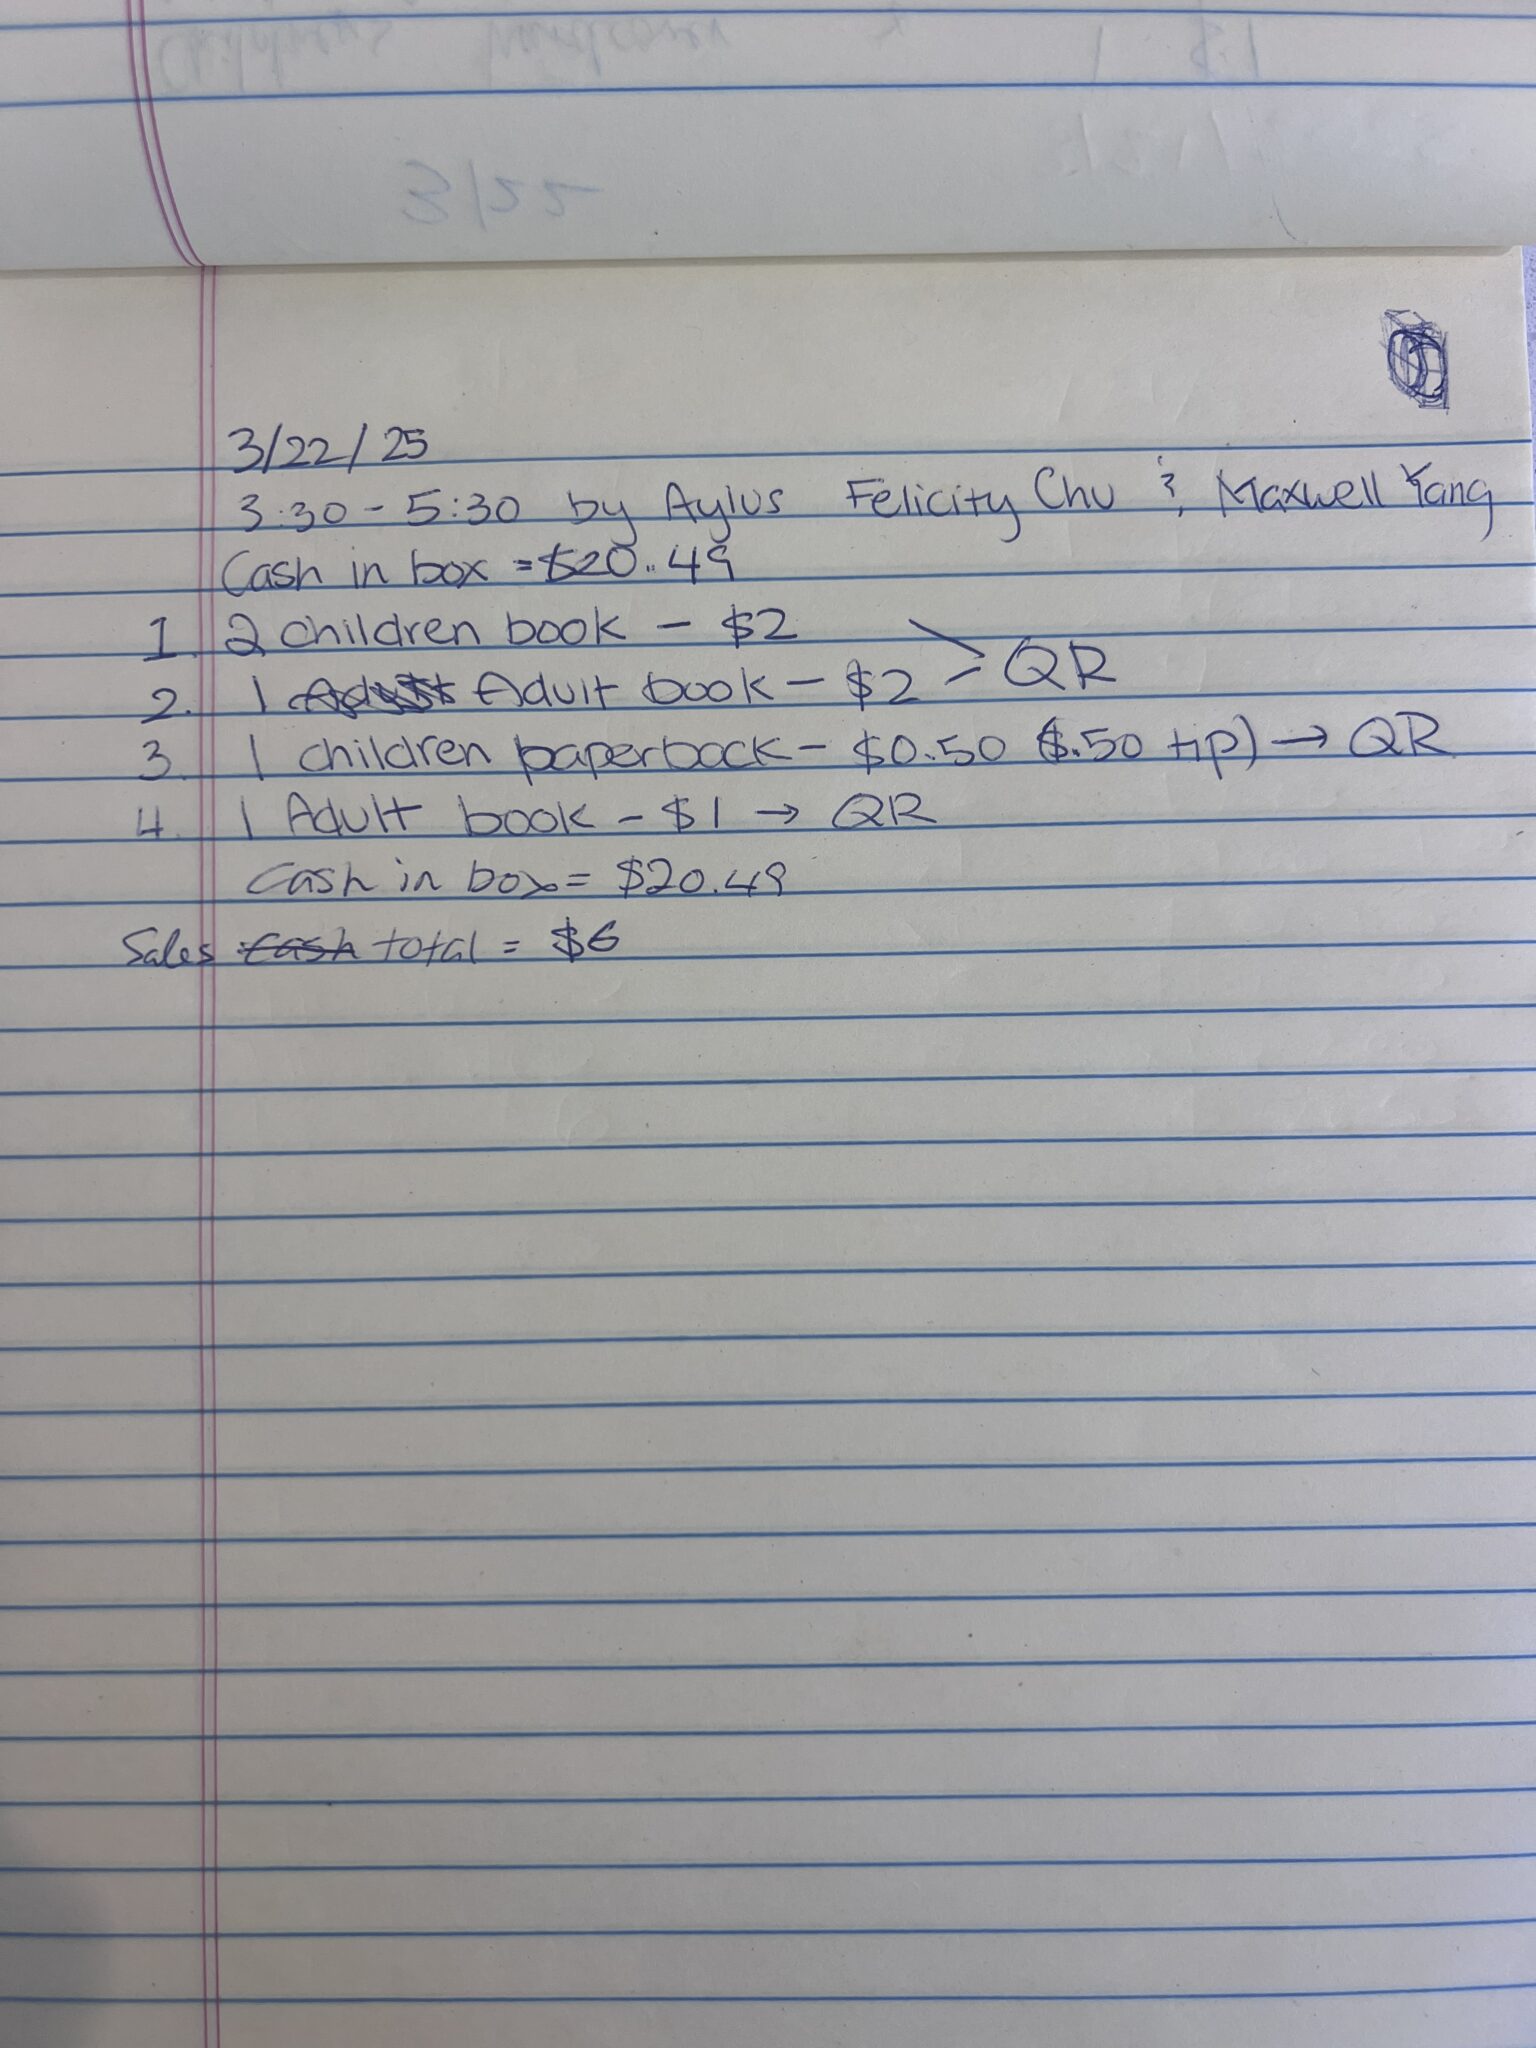 3/22
3/22/25
3:30 - 5:30 by Aylus Felicity Chu & Maxwell Yang
Cash in box = $20.49
1. 2 children book - $2
2. 1 Adult book - $2 > QR
3. 1 children paperback - $0.50 ($.50 tip) → QR
4. 1 Adult book - $1 → QR
Cash in box = $20.49
Sales cash total = $6